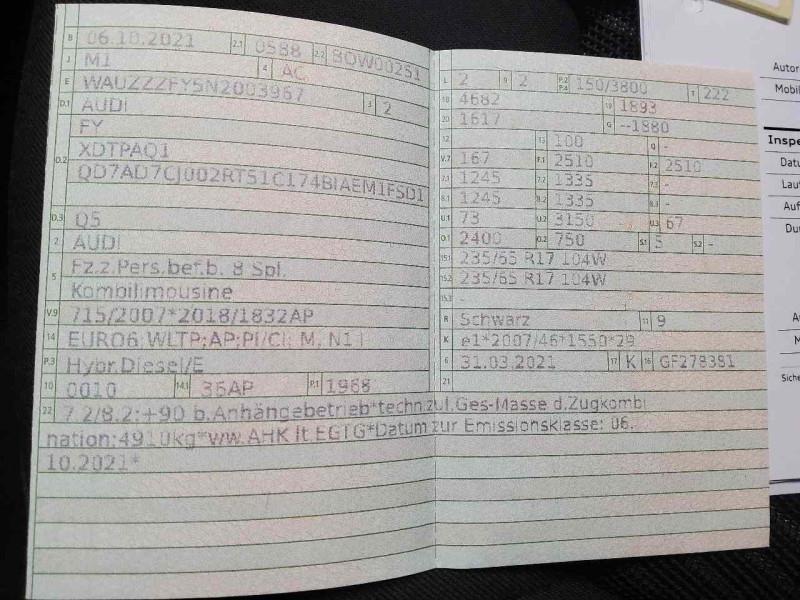 B 06.10.2021 2.1 0588 2.2 BOW00251
J M1 4 AC
E WAUZZZFY5N2003967 3 2
D.1 AUDI
FY
D.2 XDTPAQ1
QD7AD7CJ002RTS1C174BIAEM1FSD1
D.3 Q5
2 AUDI
5 Fz.z.Pers.bef.b. 8 Spl.
Kombilimousine
V.9 715/2007*2018/1832AP
14 EURO6;WLTP;AP;PI/CI; M, N1 I
P.3 Hybr.Diesel/E
10 0010 14.1 36AP P.1 1968
L 2 9 2 P.2 P.4 150/3800 T 222
18 4682 19 1893
20 1617 G --1880
12 13 100 Q -
V.7 167 F.1 2510 F.2 2510
7.1 1245 7.2 1335 7.3 -
8.1 1245 8.2 1335 8.3 -
U.1 73 U.2 3150 U.3 67
O.1 2400 O.2 750 S.1 5 S.2 -
15.1 235/65 R17 104W
15.2 235/65 R17 104W
15.3 -
R Schwarz 11 9
K e1*2007/46*1550*29
6 31.03.2021 17 K 16 GF278391
21
22 7.2/8.2:+90 b.Anhängebetrieb*techn.zul.Ges-Masse d.Zugkombi
nation:4910kg*ww.AHK lt.EGTG*Datum zur Emissionsklasse: 06.
10.2021*
Autor
Mobil
Inspe
Datu
Lauf
Auf
Du
A
M
Siche